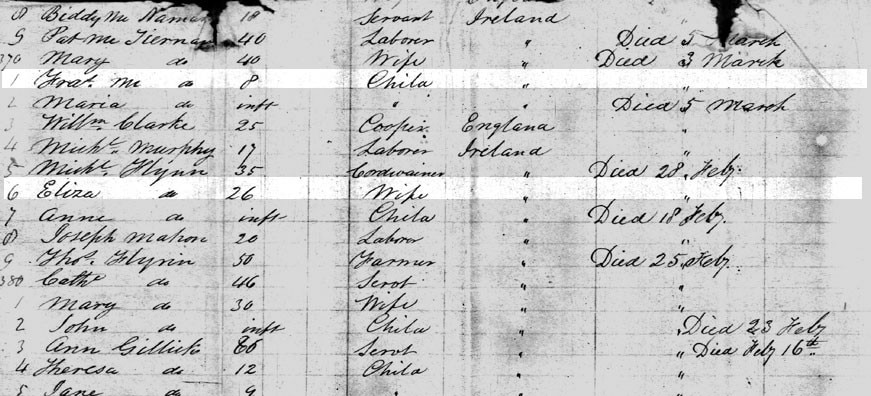 8 Biddy Mc Namar 18 Servant Ireland
9 Pat Mc Tiernan 40 Laborer " Died 5 March
370 Mary do 40 Wife " Died 3 March
1 Fras. Mc do 8 Child "
2 Maria do inft " " Died 5 March
3 Willm Clarke 25 Cooper England "
4 Michl. Murphy 17 Laborer Ireland "
5 Michl. Flynn 35 Cordwainer " Died 28 Feby.
6 Eliza do 26 Wife " "
7 Anne do inft Child " Died 18 Feby.
8 Joseph Mahon 20 Laborer " "
9 Thos. Flynn 50 Farmer " Died 25 Feby.
380 Cathe do 46 Servt " "
1 Mary do 30 Wife " "
2 John do inft Child " " Died 23 Feby
3 Ann Gillick Servt " " Died Feby 16th
4 Theresa do 12 Child " "
5 Jane do 9 "